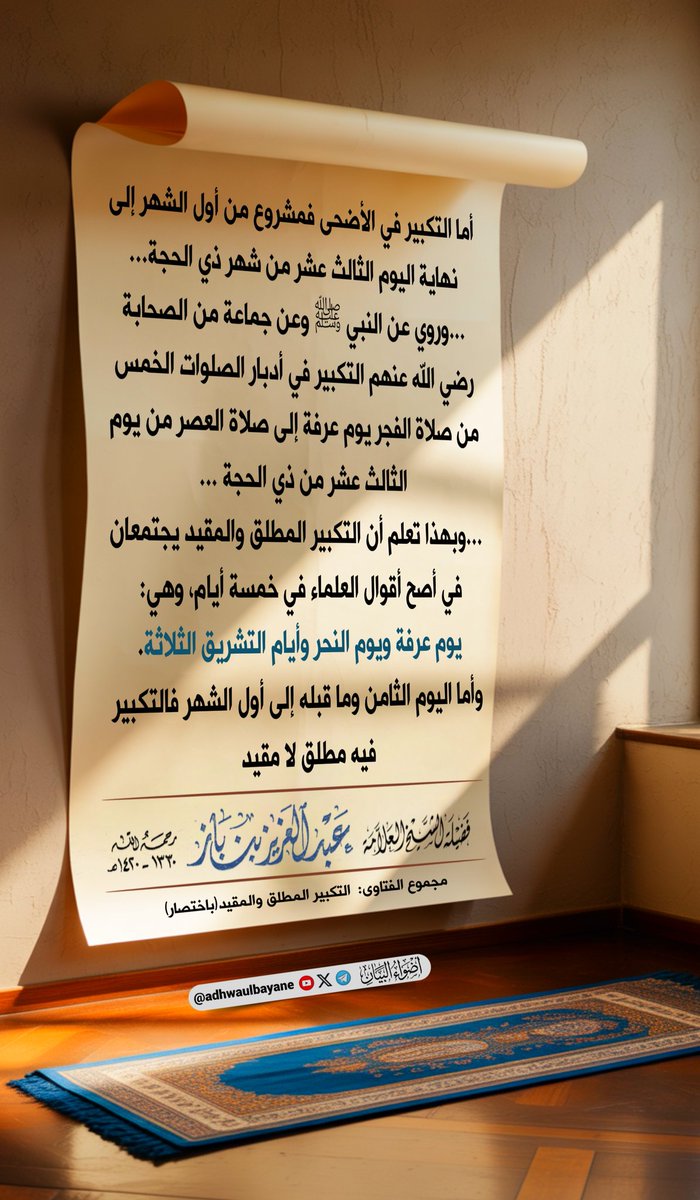 أما التكبير في الأضحى فمشروع من أول الشهر إلى
نهاية اليوم الثالث عشر من شهر ذي الحجة...
...وروي عن النبي ﷺ وعن جماعة من الصحابة
رضي الله عنهم التكبير في أدبار الصلوات الخمس
من صلاة الفجر يوم عرفة إلى صلاة العصر من يوم
الثالث عشر من ذي الحجة ...
...وبهذا تعلم أن التكبير المطلق والمقيد يجتمعان
في أصح أقوال العلماء في خمسة أيام، وهي:
يوم عرفة ويوم النحر وأيام التشريق الثلاثة.
وأما اليوم الثامن وما قبله إلى أول الشهر فالتكبير
فيه مطلق لا مقيد
فَضِيلَة الشَّيْخ العَلَّامَة عَبْد العَزِيز بن بَاز رحمه الله
١٣٣٠ - ١٤٢٠هـ
مجموع الفتاوى: التكبير المطلق والمقيد(باختصار)
أَضْوَاءُ البَيَان @adhwaulbayane